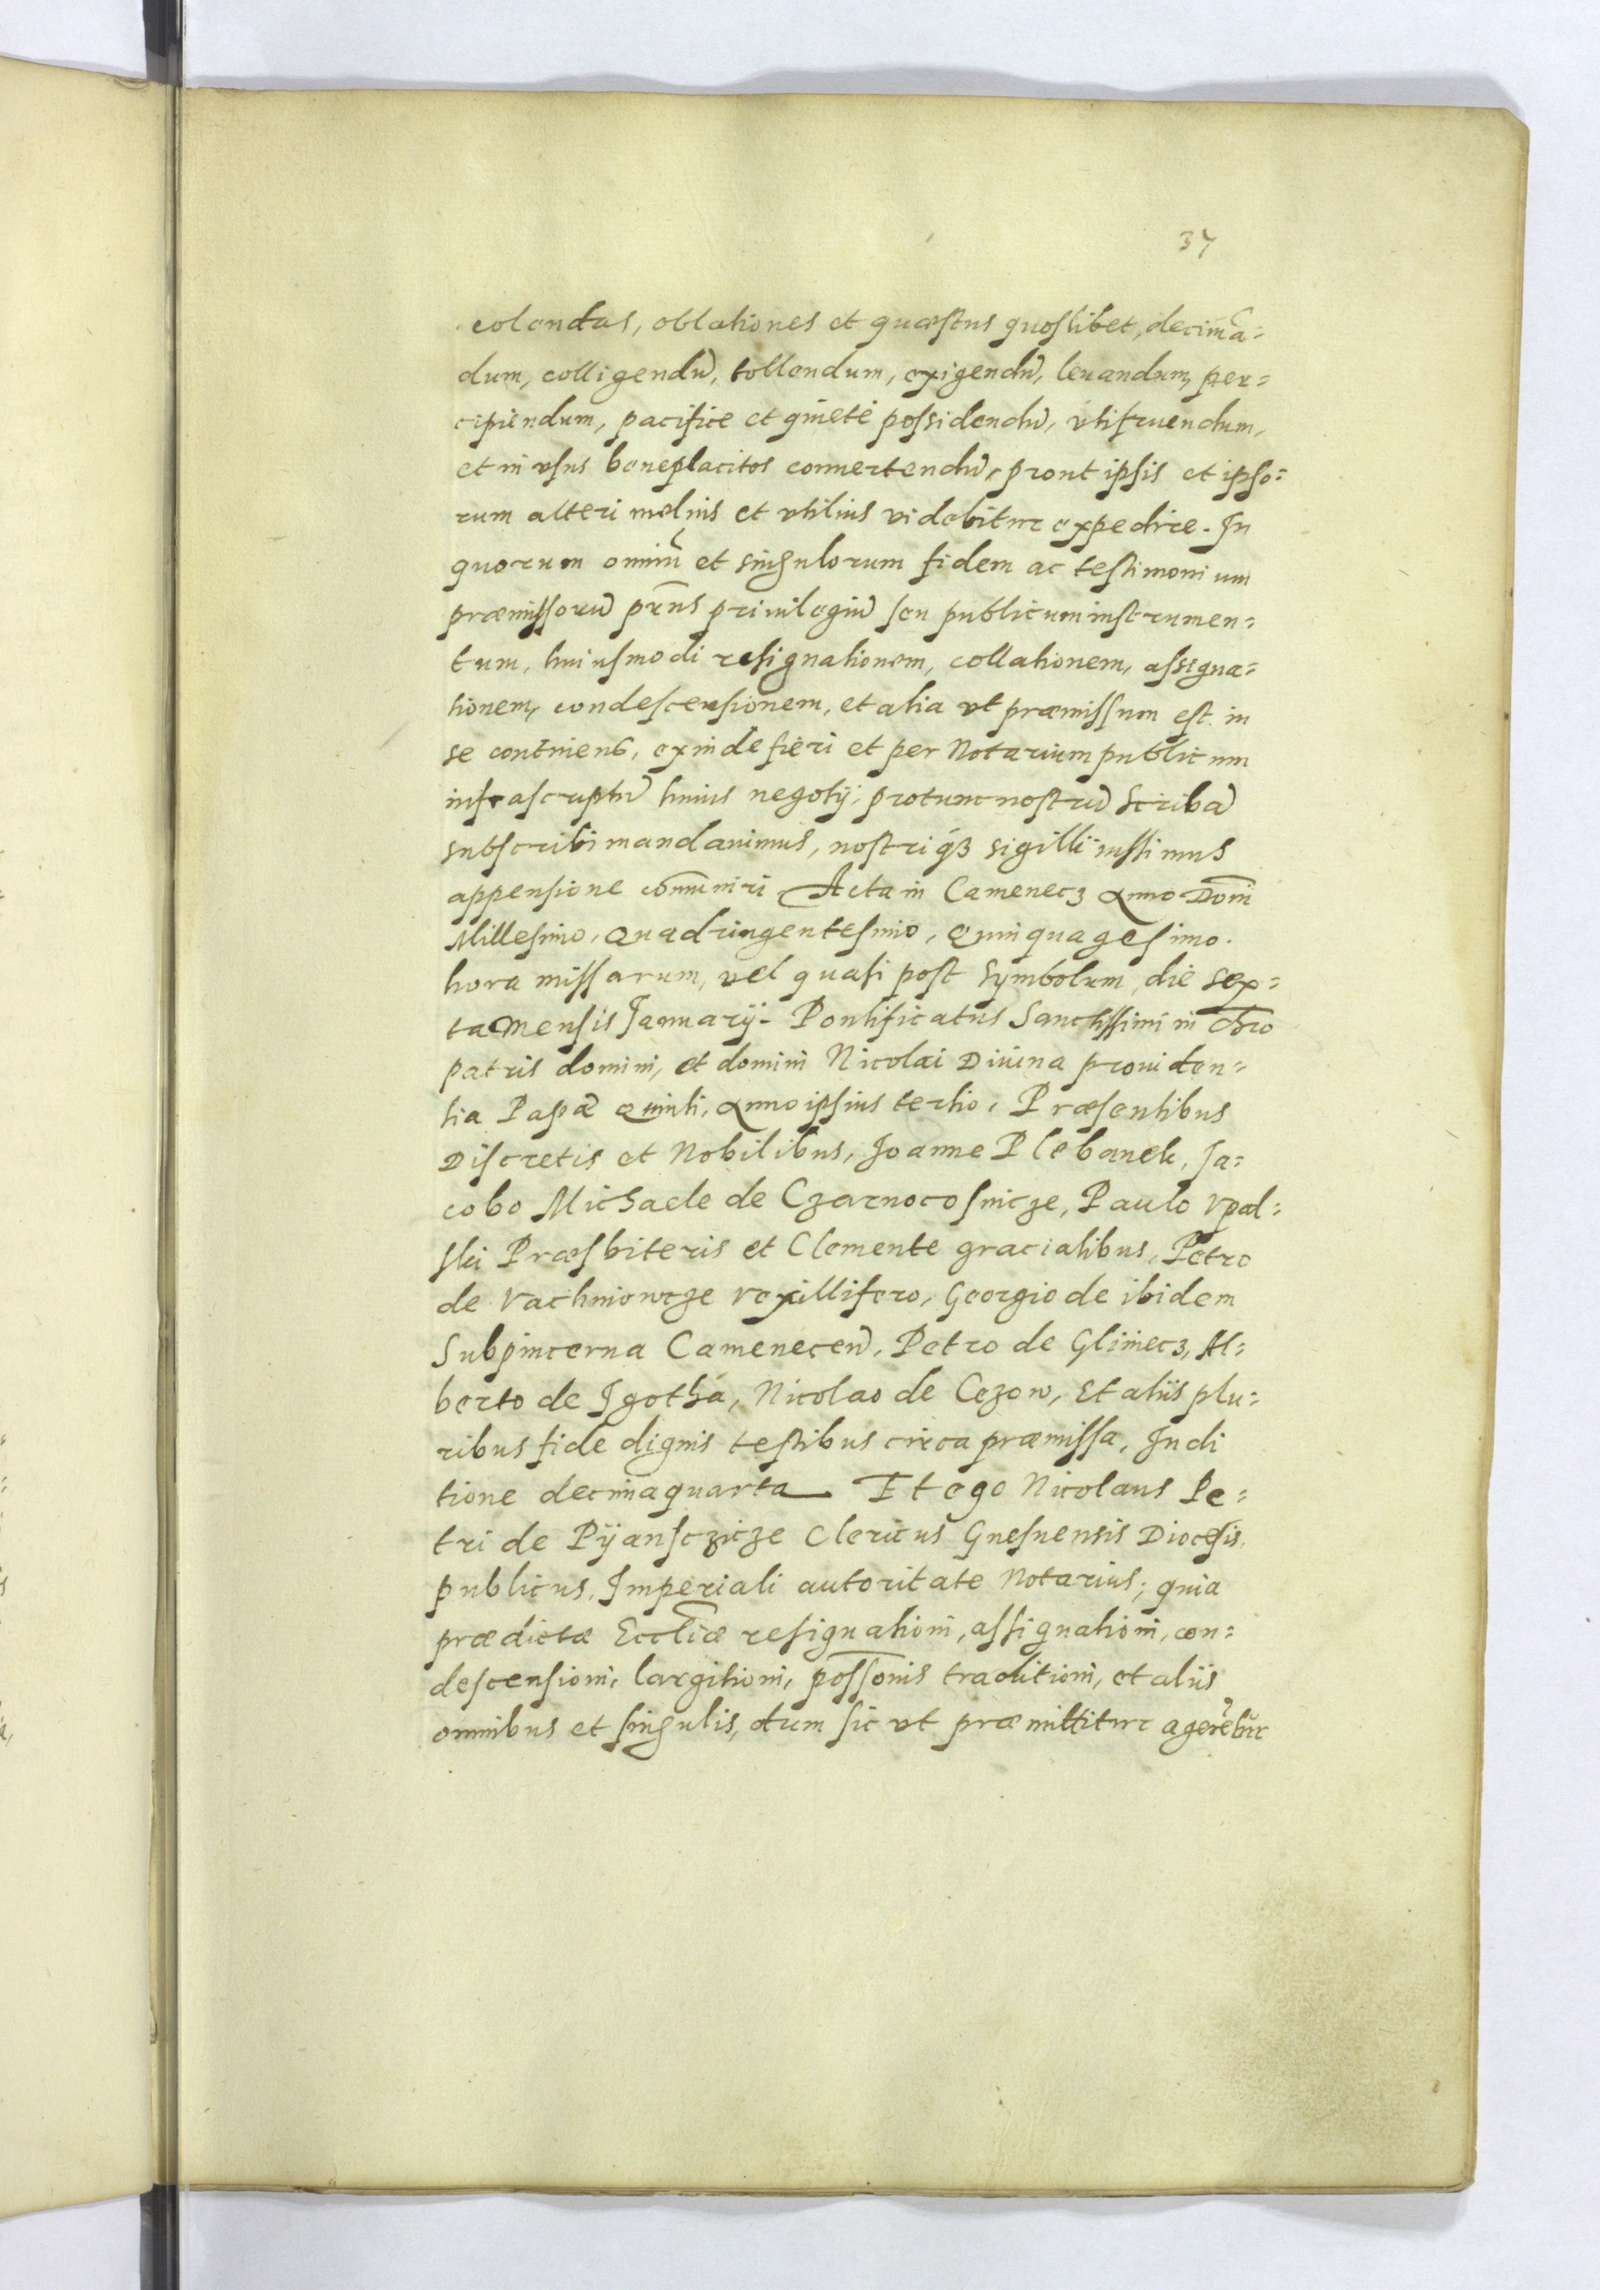 37
colendas, oblationes et quæstus quoslibet, decimā=
dum, colligendũ, tollendum, exigendũ, leuandum, per=
cipiendum, pacifice et quietè possidendũ, vtifruendum,
et in vsus beneplacitos conuertendũ, prout ipsis et ipso=
rum alteri melius et vtilius videbitur expedire. In
quorum omniũ et singulorum fidem ac testimonium
præmissorũ pn̄ns priuilegiũ seu publicum instrumen=
tum, huiusmodi resignationem, collationem, assigna=
tionem, condescensionem, et alia vt præmissum est in
se continens, exinde fieri et per Notarium publicum
infrascriptũ huius negotij, pro tunc nostrũ Scribã
subscribi mandauimus, nostriq́ꝫ sigilli iussimus
appensione com̄uniri Acta in Camenecz Anno Dom̄i
Millesimo, Quadringentesimo, Quinquagesimo.
hora missarum, vel quasi post symbolum, die sex=
ta Mensis Januarij. Pontificatus Sanctissimi in chr̄o
patris domini, et domini Nicolai Diuina prouiden=
tia Papæ Quinti, Anno ipsius tertio, Præsentibus
Discretis et Nobilibus, Joanne Plebanek, Ja=
cobo Michaele de Czarnocosnicze, Paulo Vpal=
ski Præsbiteris et Clemente gracialibus, Petro
de Vachniowcze vexillifero, Georgio de ibidem
Subpincerna Camenecen̄, Petro de Glimecz, Al=
berto de Jgotha, Nicolao de Cezow, Et aliis plu=
ribus fide dignis testibus circa præmissa, Indi
tione decimaquarta Et ego Nicolaus Pe=
tri de Pijansczicze Clericus Gnesnensis Diocesis
publicus, Imperiali autoritate Notarius; quia
prædictæ Eccl̄iæ resignationi, assignationi, con=
descensioni, largitioni, poss̄onis traditioni, et aliis
omnibus et singulis, dum sic vt præmittitur agerẽtur